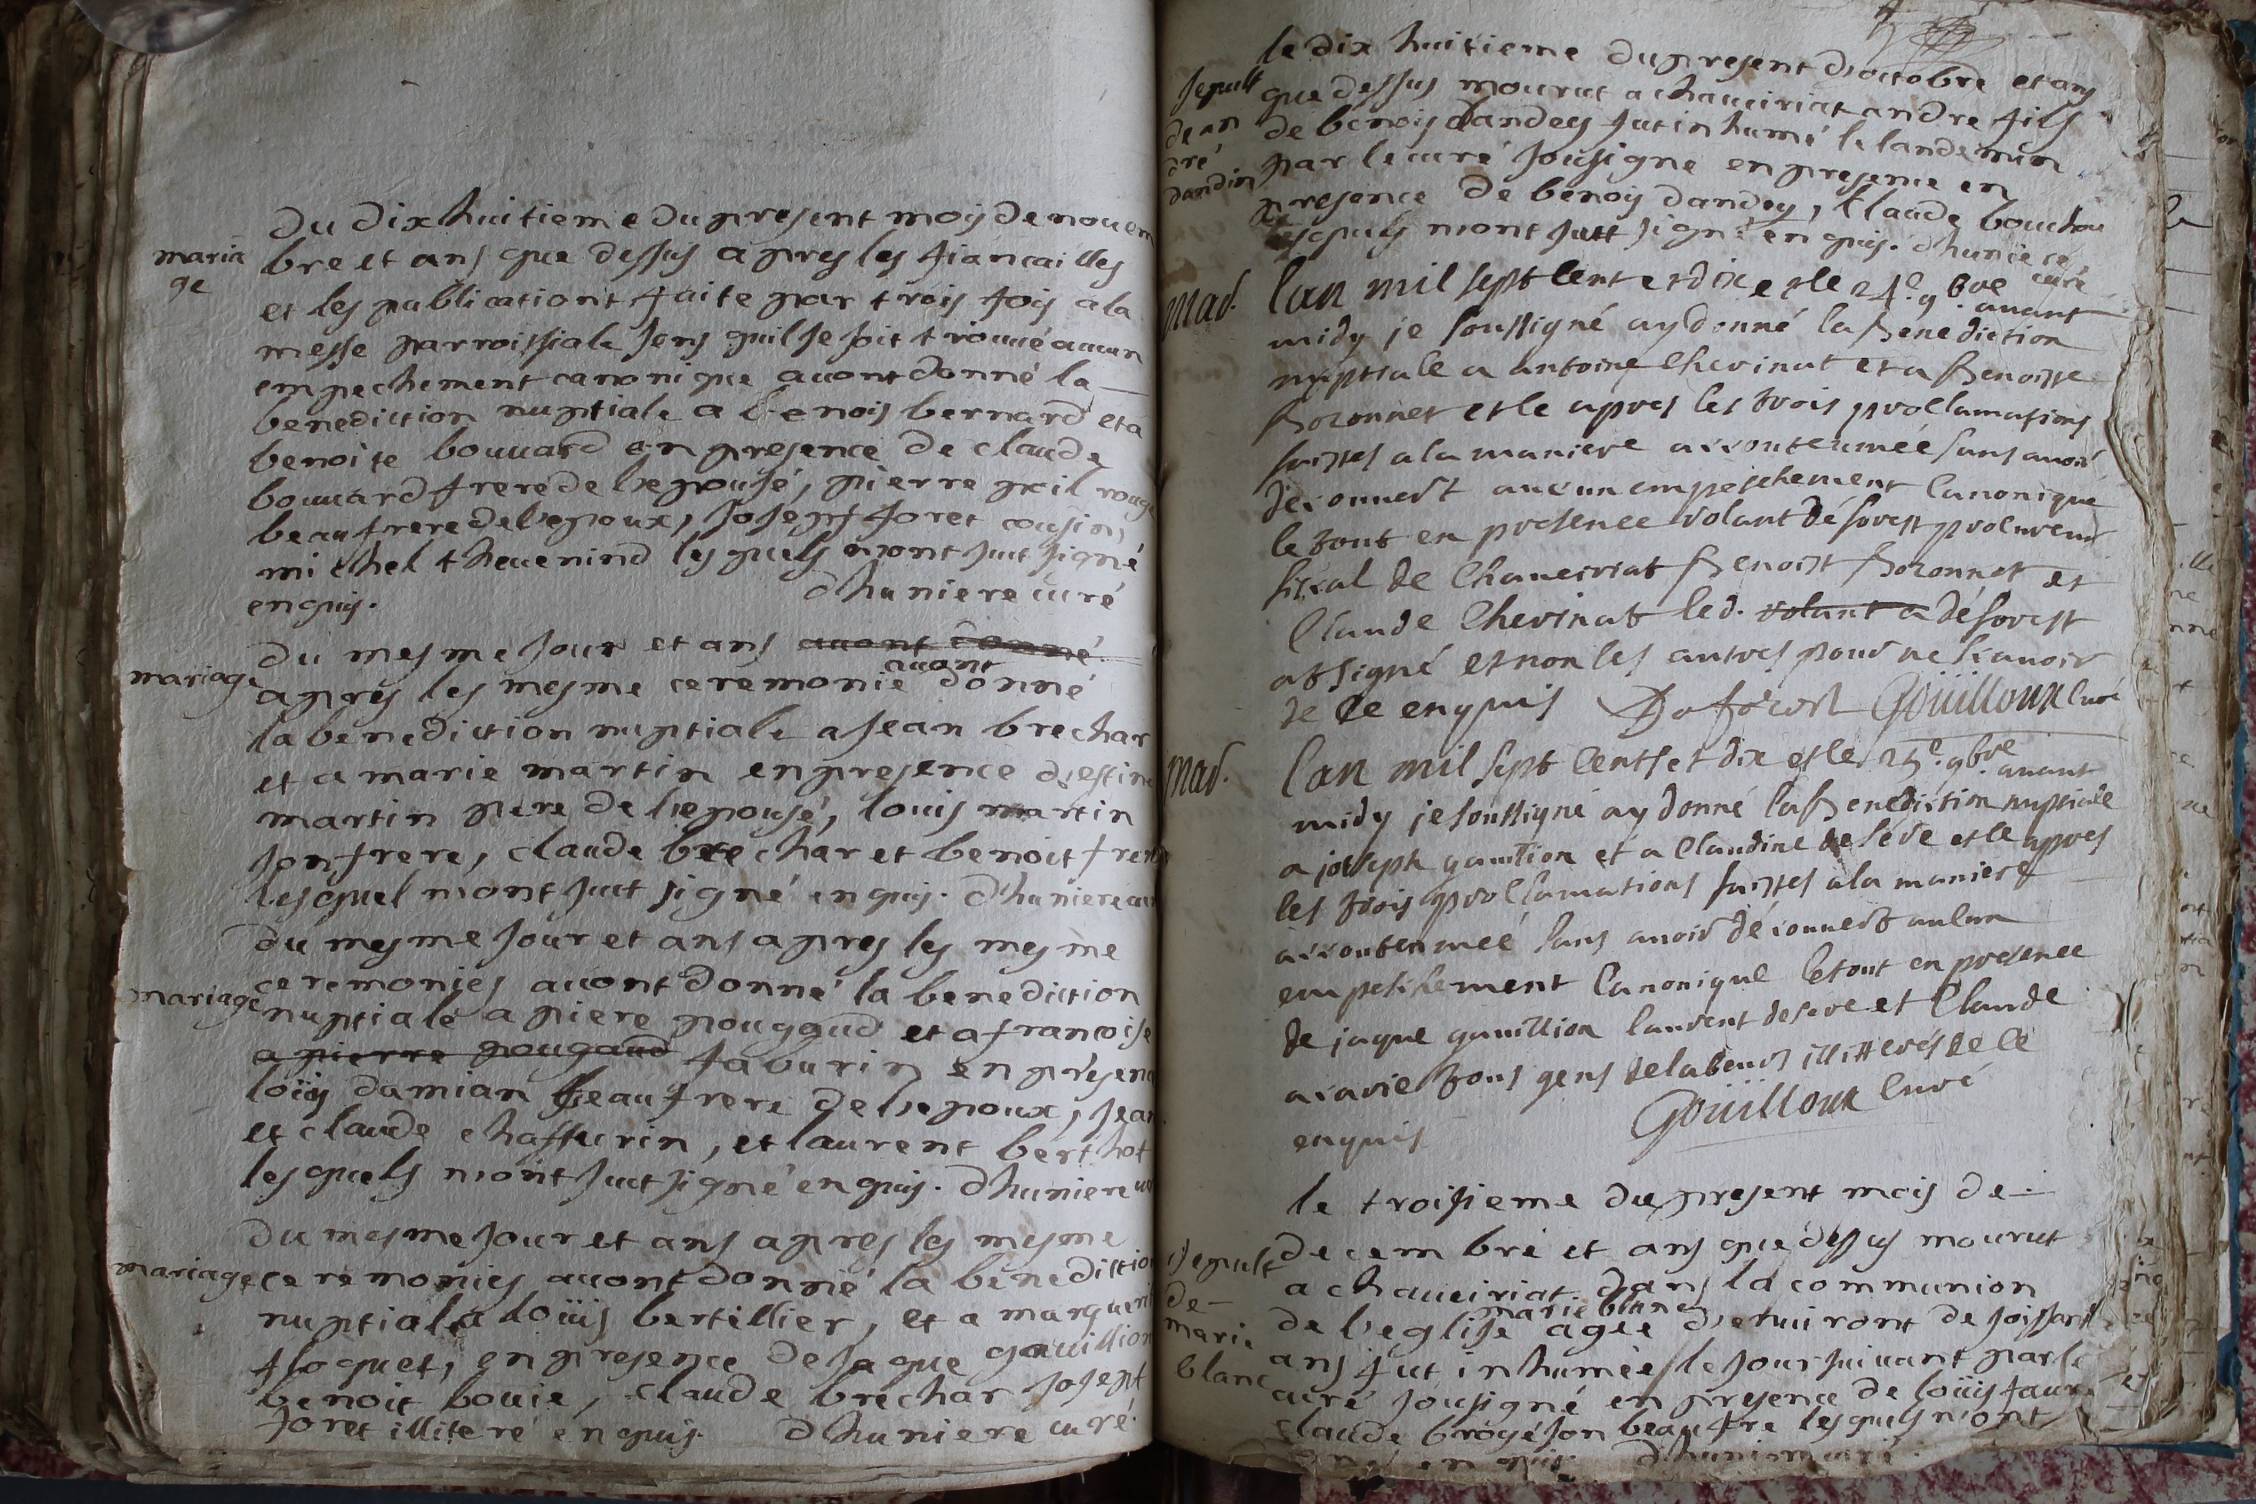 du dixhuitieme du present mois de nouem
maria
ge
bre et ans que dessus apres les fiancailles
et les publications faite par trois fois a la
messe parroissiale sens quil se soit trouué aucun
empechement canonique auont donné la
benediction nuptiale a benois bernard et a
benoite bouuard en presence de claude
bouuard frere de lepousé, pierre poil rouge
beaufrere de lepoux, josept foret cousin,
michel theuenind les quels nont sut signé
enquis. dhuniere curé
mariage
du mesme jour et ans auont donné
apres les mesme ceremonie auont donné
la benediction nuptiale a jean brechar
et a marie martin en presence destine
martin pere de lepousé, louis martin
son frere, claude brechar et benoit frere
lesquel nont sut signé enquis. dhuniere
mariage
du mesme jour et ans apres les mesme
ceremonies auont donné la benediction
nuptiale a piere pougaud et a francoise
a pierre pougaud faburin en presenc
loüy damian beaufrere de lepoux, jean
et claude chaffurin, et laurent berthot
lesquels nont sut signé enquis. dhuniere
mariage
du mesme jour et ans apres les mesme
ceremonies auont donné la benediction
nuptiale a loüis bertillier, et a marguerit
floquet, en presence de jaque gauillion
benoit bouie, claude brechar josept
foret illiteré enquis. dhuniere curé
sepult
de an
dré
dandin
le dix huitieme du present doctobre et ans
que dessus mourut a chaueiriat andre fils
de benois dandey fut inhumé le landemin
par le curé sousigne en presence en
presence de benoy dandey, claude bouchou
lesquels nont sutt signé enquis. dhuniere
curé
mad.
lan mil sept cent et dix et le 24e 9bre auant
midy je soussigné ay donné la benediction
nuptiale a antoine chevinat et a benoiste
bozonnet et le apres les trois proclamations
faittes a la maniere accouteumée sans auoir
decouuert aucun empeschement canonique
le tout en presence volant déforest procureur
fiscal de chaueiriat benoist bozonnet et
claude chevinat led. volant a déforest
at signé et non les autres pour ne scauoir
de ce enquis Deforest Goüilloux curé
mad.
lan mil sept cents et dix et le 25e 9bre auant
midy je soussigné ay donné la benediction nuptiale
a joseph gauillion et a claudine de seve et le apres
les trois proclamations faittes a la maniere
accouteumeé sans auoir découuert aulcun
empeschement canonique le tout en presence
de jaque gauillion laurent deseve et claude
acarie tous gens de labeur illitterés de ce
enquis Goüilloux curé
sepult
de
marie
blanc
le troisieme du present mois de
decembre et ans que dessus mourut
a chaueiriat dans la communion
de l'eglise marie blanc agée denuiront de soissant
ans fut inhumée le jour suiuant par le
curé sousigné en presence de loüis faur
claude brogé son beaufre lesquels nont
enquis dhuniere curé